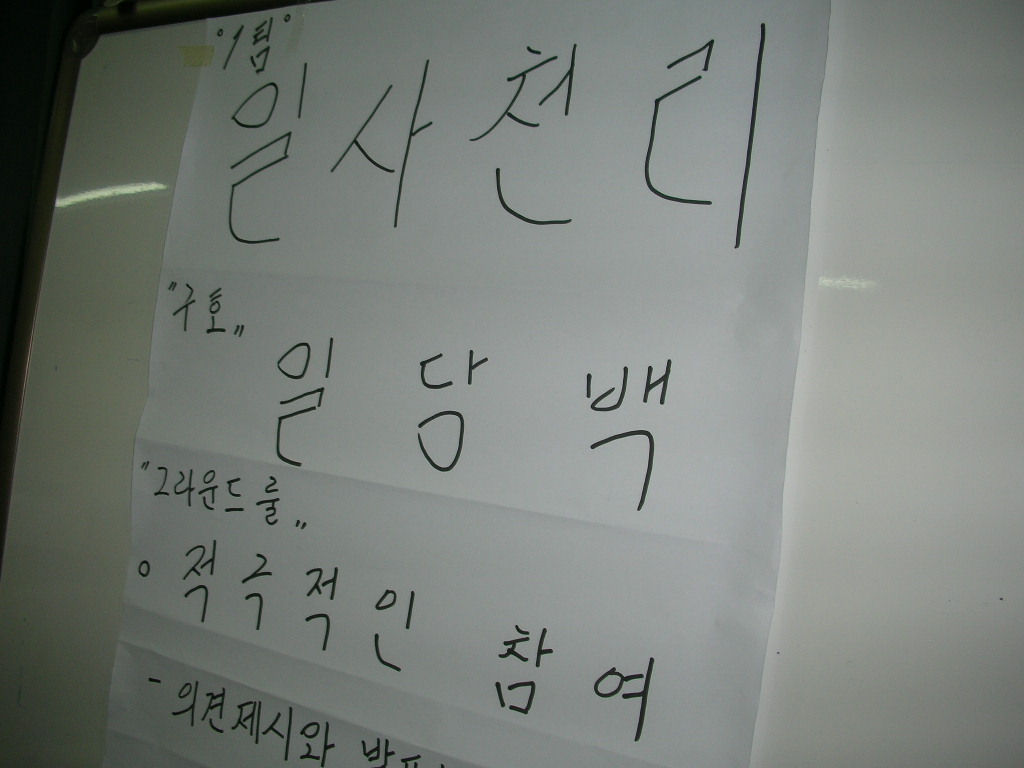 °1팀°
일사천리
"구호"
일당백
"그라운드룰"
○ 적극적인 참여
- 의견제시와